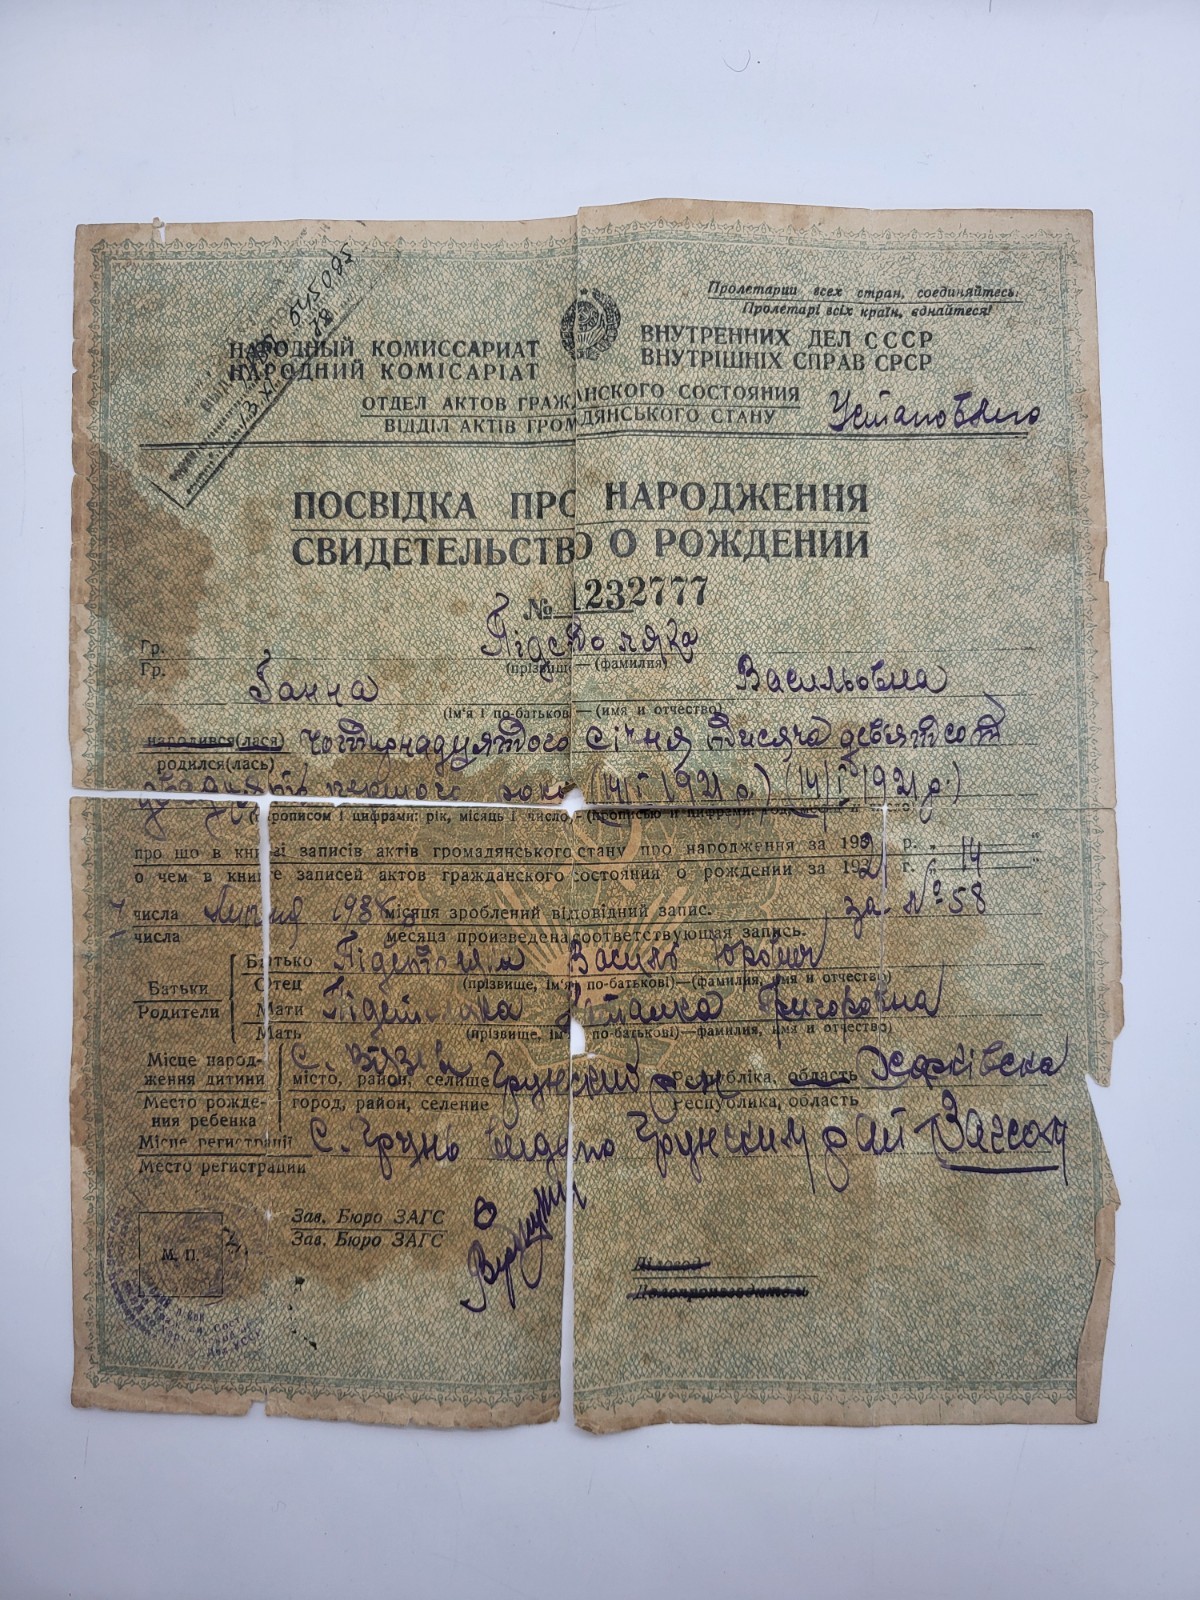 645095
Пролетарии всех стран, соединяйтесь!
Пролетарі всіх країн, єднайтеся!
НАРОДНЫЙ КОМИССАРИАТ ВНУТРЕННИХ ДЕЛ СССР
НАРОДНИЙ КОМІСАРІАТ ВНУТРІШНІХ СПРАВ СРСР
ОТДЕЛ АКТОВ ГРАЖДАНСКОГО СОСТОЯНИЯ
ВІДДІЛ АКТІВ ГРОМАДЯНСЬКОГО СТАНУ
ПОСВІДКА ПРО НАРОДЖЕННЯ
СВИДЕТЕЛЬСТВО О РОЖДЕНИИ
№ 1232777
Гр.
Гр. (прізвище)—(фамилия)
Ганна Васильовна
(ім'я і по-батькові)—(имя и отчество)
народився(лася) чотирнадцятого січня тисяча девятсот
родился(лась)
двадцять першого року (14/I 1921 р.) (14/I 1921 р.)
(прописом і цифрами: рік, місяць і число)—(прописью и цифрами: год, месяц и число)
про що в книзі записів актів громадянського стану про народження за 1921 р.
о чем в книге записей актов гражданского состояния о рождении за 1921 г. 14
числа місяця зроблений відповідний запис. за № 58
числа месяца произведена соответствующая запись.
Батьки
Родители
Батько Василь
Отец (прізвище, ім'я, по-батькові)—(фамилия, имя и отчество)
Мати Григоровна
Мать (прізвище, ім'я, по-батькові)—(фамилия, имя и отчество)
Місце народження дитини с. Грунский Харківска
місто, район, селище Республіка, область
Место рождения ребенка город, район, селение Республика, область
Місце регистрації с. Грунь Грунским рай Загсом
Место регистрации
Зав. Бюро ЗАГС
Зав. Бюро ЗАГС
М. П.
Діловод
Делопроизводитель